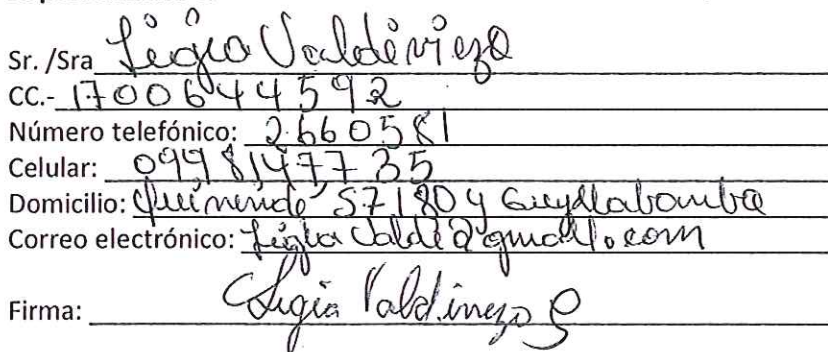 Sr. /Sra Ligia Valdiviezo
CC.- 1700644592
Número telefónico: 2660581
Celular: 0998147735
Domicilio: Quinindé S7180 y Guayllabamba
Correo electrónico: Ligia Valdi@gmail.com
Firma: Ligia Valdiviezo G